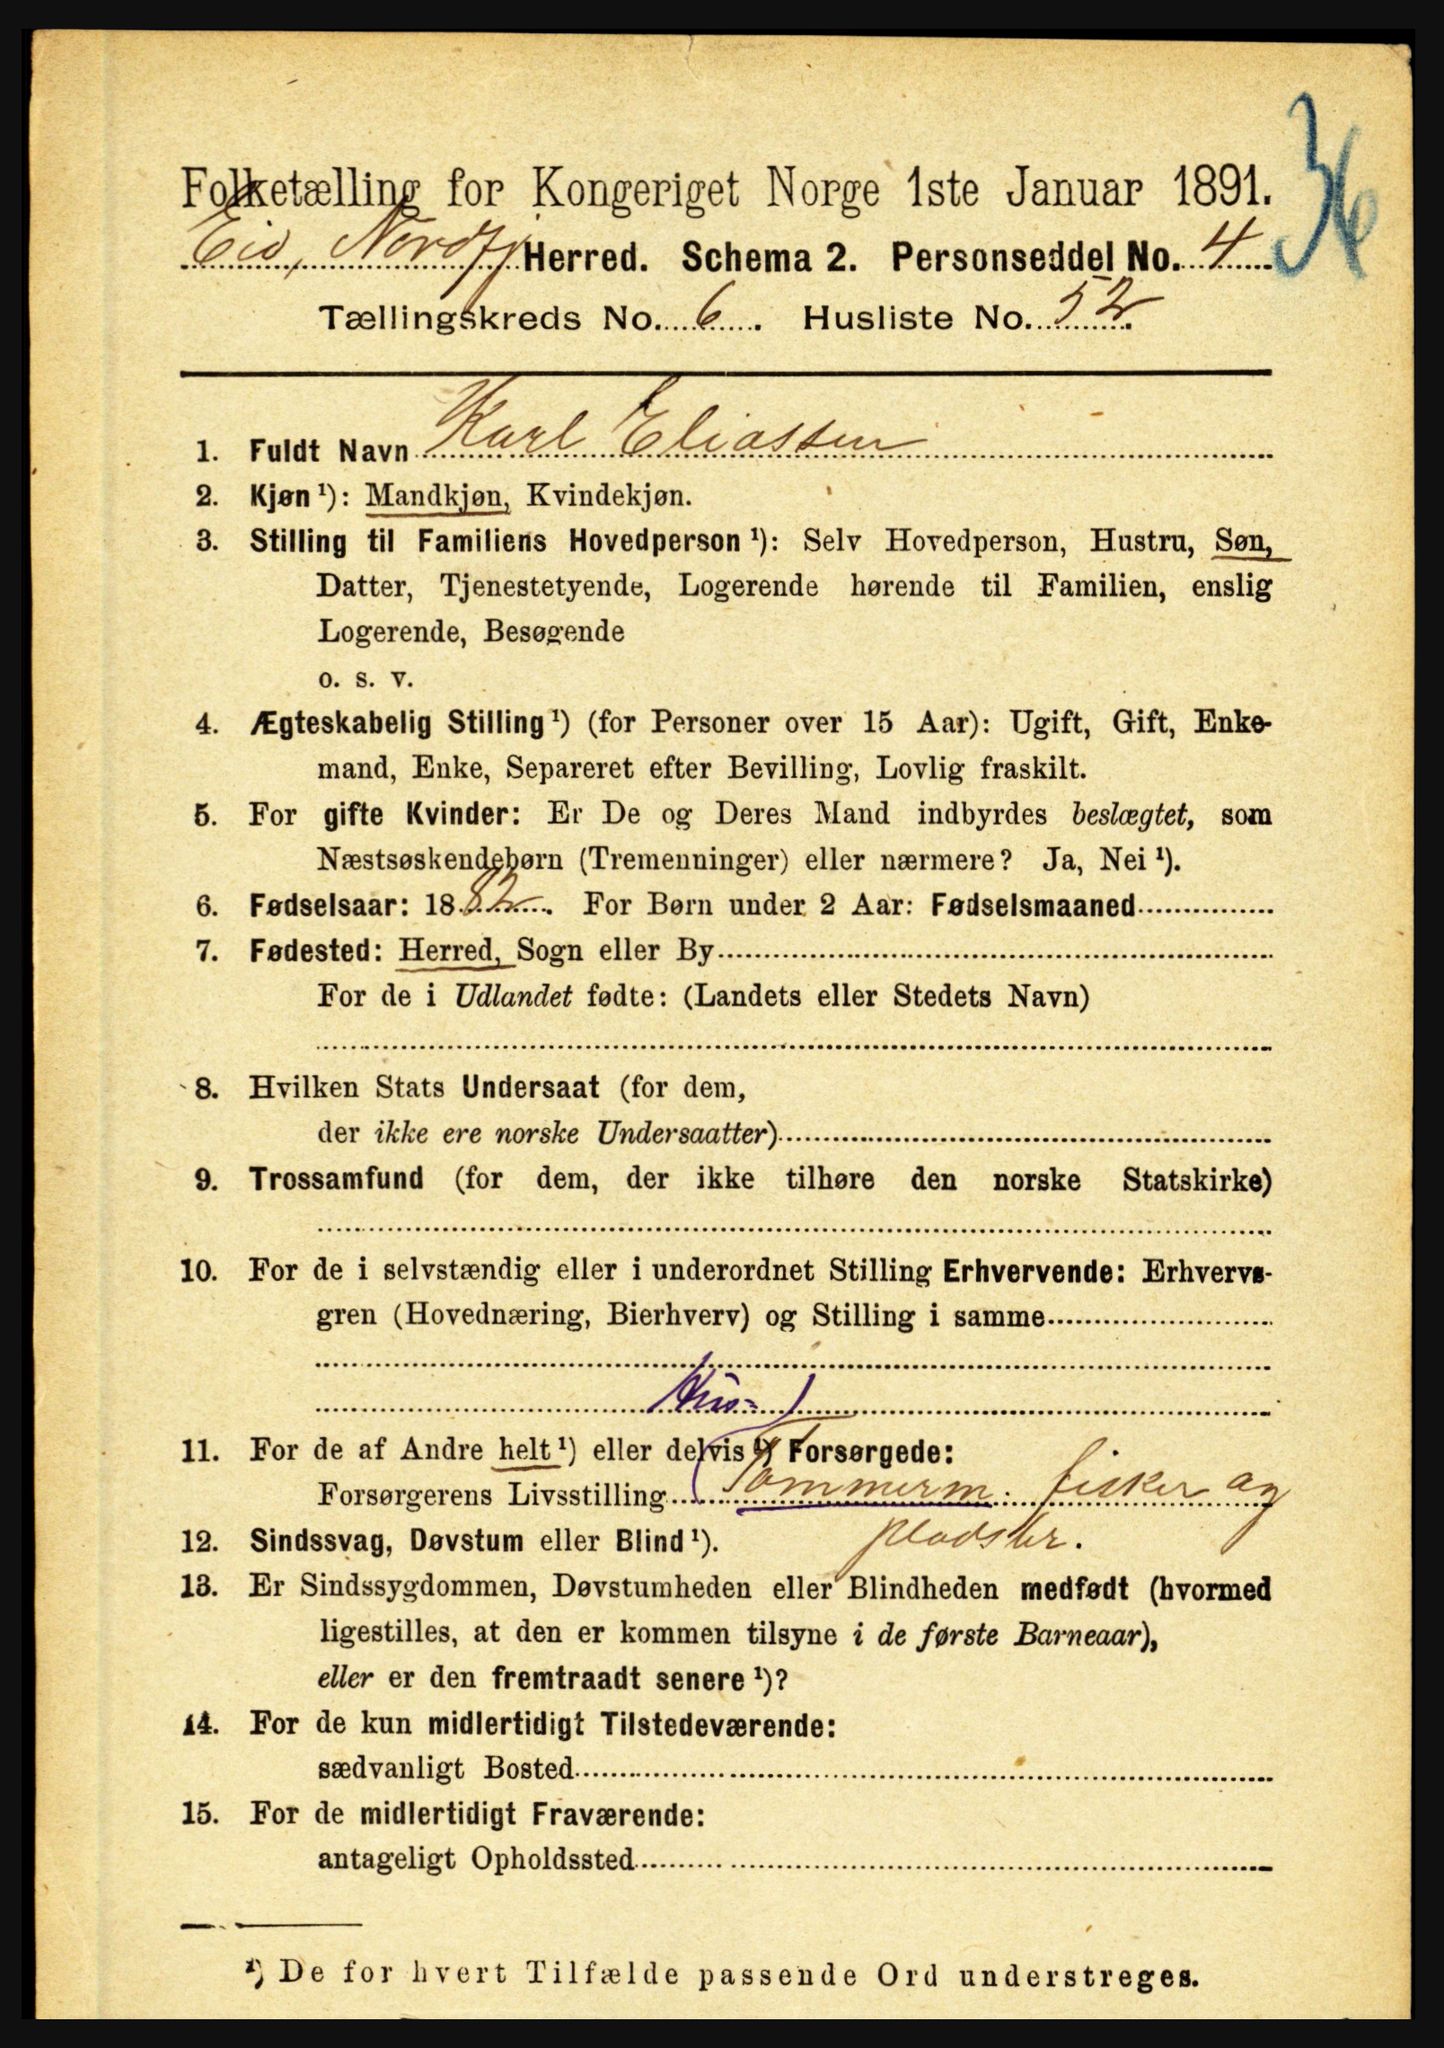 36
Folketælling for Kongeriget Norge 1ste Januar 1891.
Eid, Nordfj Herred. Schema 2. Personseddel No. 4
Tællingskreds No. 6. Husliste No. 52.
1. Fuldt Navn Karl Eliassen
2. Kjøn ¹): Mandkjøn, Kvindekjøn.
3. Stilling til Familiens Hovedperson ¹): Selv Hovedperson, Hustru, Søn,
Datter, Tjenestetyende, Logerende hørende til Familien, enslig
Logerende, Besøgende
o. s. v.
4. Ægteskabelig Stilling ¹) (for Personer over 15 Aar): Ugift, Gift, Enke-
mand, Enke, Separeret efter Bevilling, Lovlig fraskilt.
5. For gifte Kvinder: Er De og Deres Mand indbyrdes beslægtet, som
Næstsøskendebørn (Tremenninger) eller nærmere? Ja, Nei ¹).
6. Fødselsaar: 1882. For Børn under 2 Aar: Fødselsmaaned
7. Fødested: Herred, Sogn eller By
For de i Udlandet fødte: (Landets eller Stedets Navn)
8. Hvilken Stats Undersaat (for dem,
der ikke ere norske Undersaatter)
9. Trossamfund (for dem, der ikke tilhøre den norske Statskirke)
10. For de i selvstændig eller i underordnet Stilling Erhvervende: Erhvervs-
gren (Hovednæring, Bierhverv) og Stilling i samme
Hus-)
11. For de af Andre helt ¹) eller delvis ¹) Forsørgede:
Forsørgerens Livsstilling (Tømmerm. fisker og
pladsbr.
12. Sindssvag, Døvstum eller Blind ¹).
13. Er Sindssygdommen, Døvstumheden eller Blindheden medfødt (hvormed
ligestilles, at den er kommen tilsyne i de første Barneaar),
eller er den fremtraadt senere ¹)?
14. For de kun midlertidigt Tilstedeværende:
sædvanligt Bosted
15. For de midlertidigt Fraværende:
antageligt Opholdssted
¹) De for hvert Tilfælde passende Ord understreges.